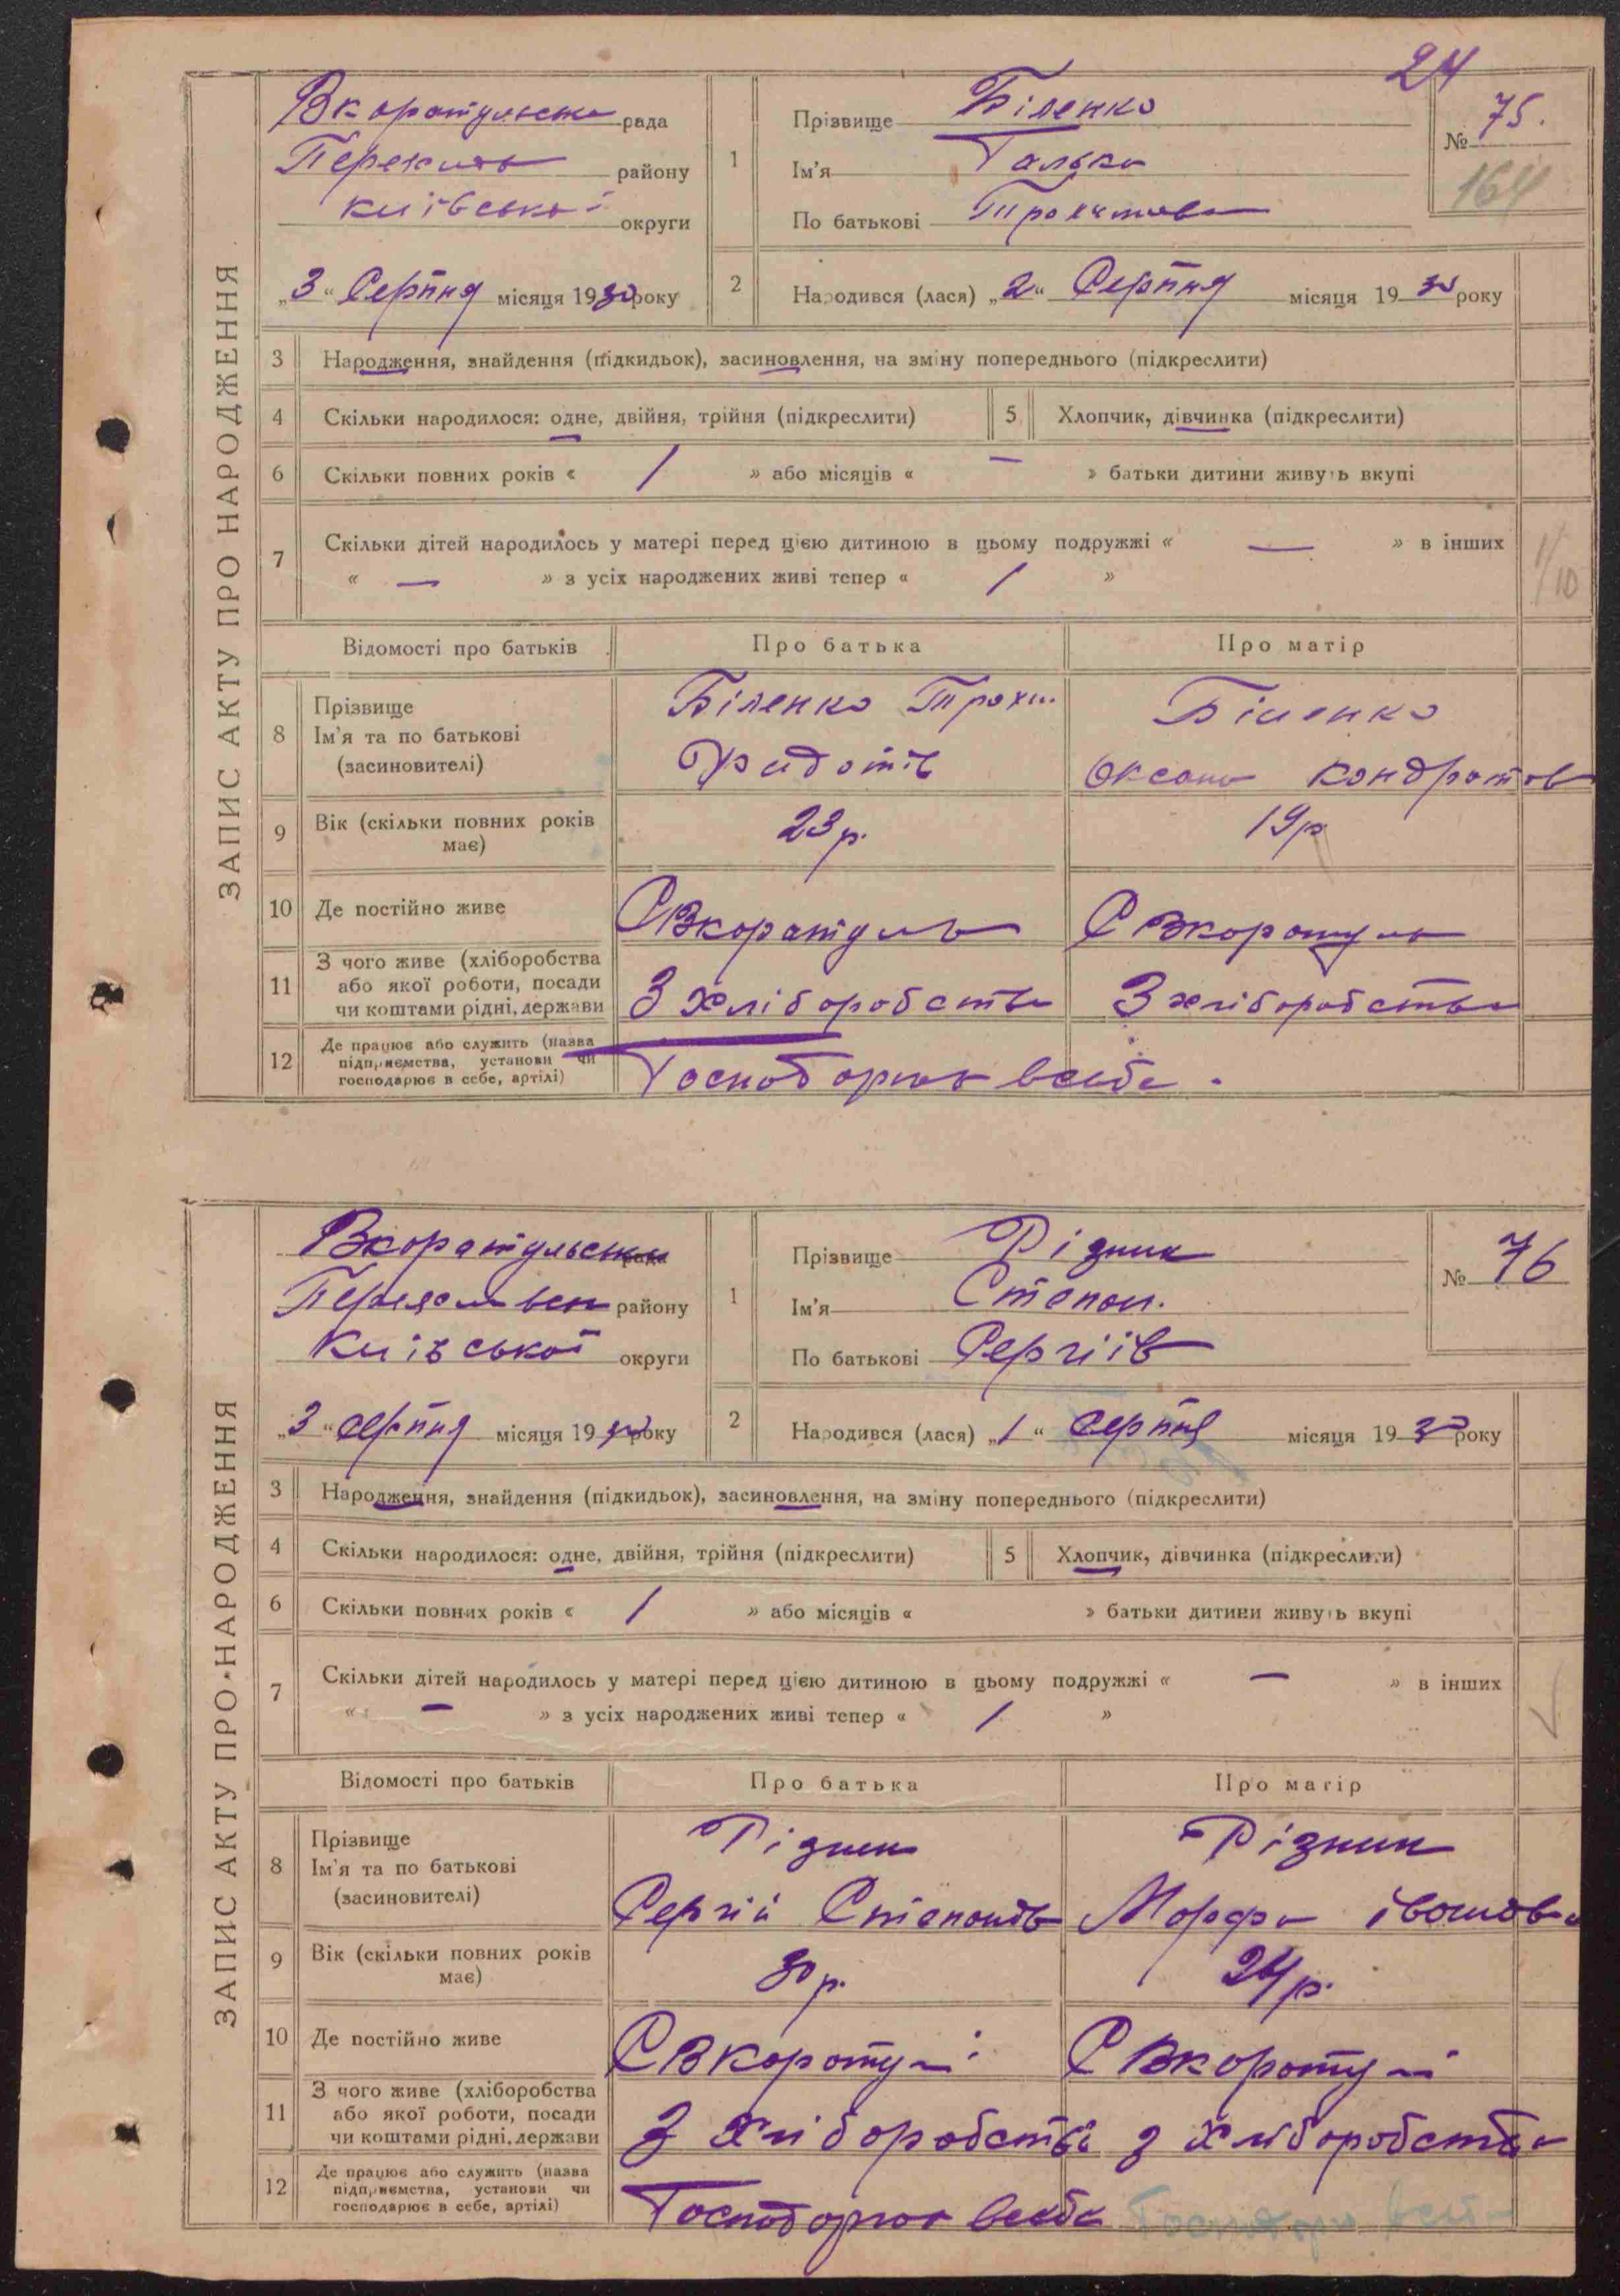 24
ЗАПИС АКТУ ПРО НАРОДЖЕННЯ
Вкоратульська рада
району
Київської округи
„3“ Серпня місяця 1930 року
1
Прізвище Біленко
Ім'я Галька
По батькові
№ 75.
164
2
Народився (лася) „2“ Серпня місяця 1930 року
3 Народження, знайдення (підкидьок), засиновлення, на зміну попереднього (підкреслити)
4 Скільки народилося: одне, двійня, трійня (підкреслити) 5 Хлопчик, дівчинка (підкреслити)
6 Скільки повних років « / » або місяців « — » батьки дитини живуть вкупі
7 Скільки дітей народилось у матері перед цією дитиною в цьому подружжі « — » в інших
« — » з усіх народжених живі тепер « / »
1/10
Відомості про батьків Про батька Про матір
8 Прізвище
Ім'я та по батькові
(засиновителі)
Біленко Трохим
Федотів
Біленко
Оксана Кондратов
9 Вік (скільки повних років має)
23 р. 19 р
10 Де постійно живе
С Вкоратуль С Вкоратуль
11 З чого живе (хліборобства
або якої роботи, посади
чи коштами рідні, держави
З хліборобства З хліборобства
12 Де працює або служить (назва
підприємства, установи чи
господарює в себе, артілі)
Господарює всебе.
ЗАПИС АКТУ ПРО НАРОДЖЕННЯ
Вкоратульська рада
району
Київської округи
„3“ серпня місяця 1930 року
1
Прізвище Різник
Ім'я Степан.
По батькові Сергіів
№ 76
2
Народився (лася) „1“ серпня місяця 1930 року
3 Народження, знайдення (підкидьок), засиновлення, на зміну попереднього (підкреслити)
4 Скільки народилося: одне, двійня, трійня (підкреслити) 5 Хлопчик, дівчинка (підкреслити)
6 Скільки повних років « / » або місяців « » батьки дитини живуть вкупі
7 Скільки дітей народилось у матері перед цією дитиною в цьому подружжі « — » в інших
« — » з усіх народжених живі тепер « / »
Відомості про батьків Про батька Про матір
8 Прізвище
Ім'я та по батькові
(засиновителі)
Різник
Сергій Степанов
Різник
Марфа Івановна
9 Вік (скільки повних років має)
30 р. 24 р.
10 Де постійно живе
С Вкоратулі С Вкоратулі
11 З чого живе (хліборобства
або якої роботи, посади
чи коштами рідні, держави
З хліборобства з хліборобства
12 Де працює або служить (назва
підприємства, установи чи
господарює в себе, артілі)
Господарює всебе